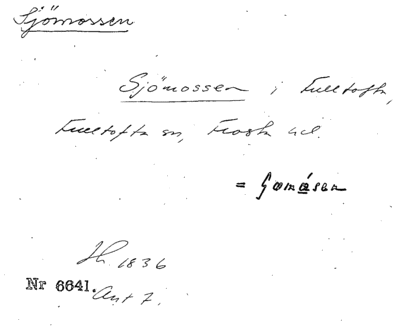 Sjömossen
Sjömossen i Fulltofta,
Fulltofta sn, Frosta hd.
= Gamåsen
Jh. 1836
Nr 6641. Ant 7.